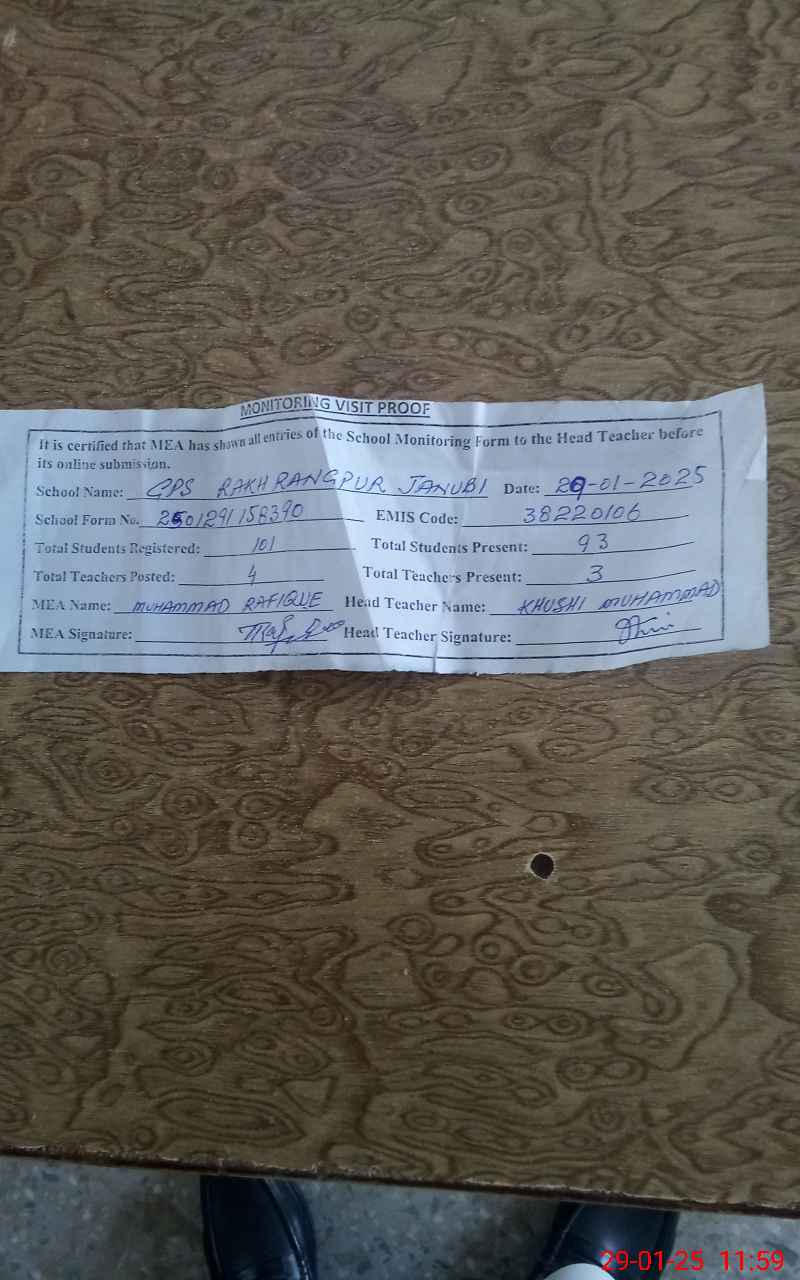 MONITORING VISIT PROOF
It is certified that MEA has shown all entries of the School Monitoring Form to the Head Teacher before
its online submission.
School Name: GPS RAKH RANGPUR JANUBI Date: 29-01-2025
School Form No. 2501291158390 EMIS Code: 38220106
Total Students Registered: 101 Total Students Present: 93
Total Teachers Posted: 4 Total Teachers Present: 3
MEA Name: MUHAMMAD RAFIQUE Head Teacher Name: KHUSHI MUHAMMAD
MEA Signature: Head Teacher Signature:
29-01-25 11:59